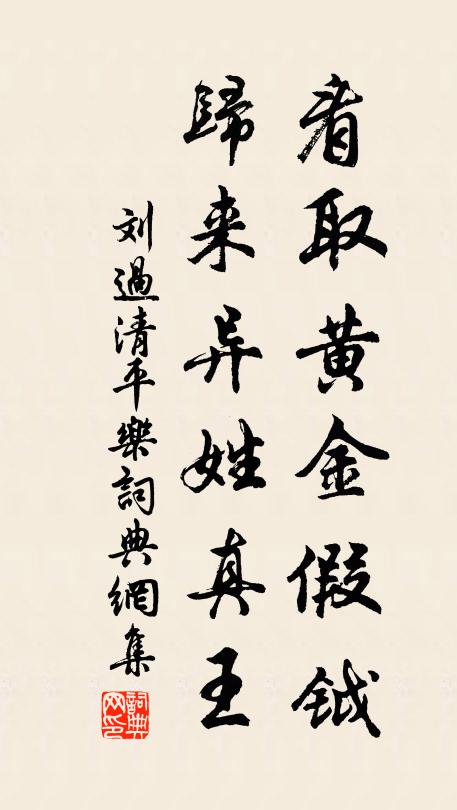 看取黄金假钺
歸来异姓真王
刘過清平樂詞典網集
詞典網印